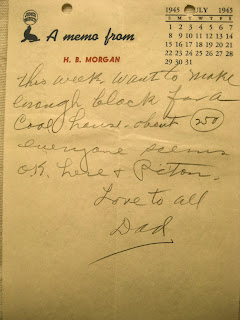 1945 JULY 1945
S M T W T F S
1 2 3 4 5 6 7
8 9 10 11 12 13 14
15 16 17 18 19 20 21
22 23 24 25 26 27 28
29 30 31
A memo from
H. B. MORGAN
this week. Want to make
enough block for a
Cool house - about 250
everyone seems
O.K. here & Picton.
Love to all
Dad